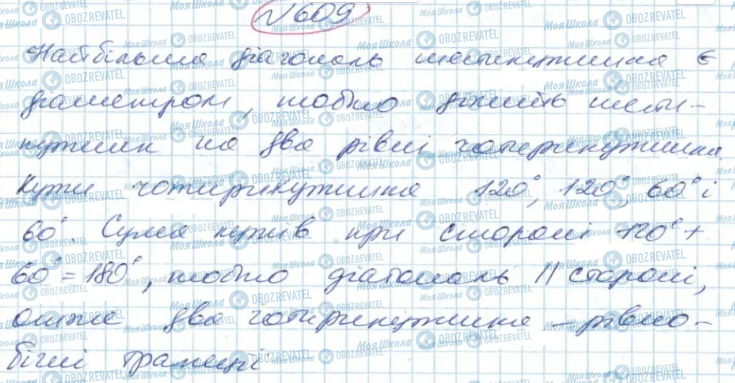 №609
Найбільша діагональ шестикутника є
діаметром, тобто ділить шести-
кутник на два рівні чотирикутника.
Кути чотирикутника 120°, 120°, 60° і
60°. Сума кутів при стороні 120° +
60° = 180°, тобто діагональ || стороні,
отже два чотирикутника – рівно-
бічні трапеції